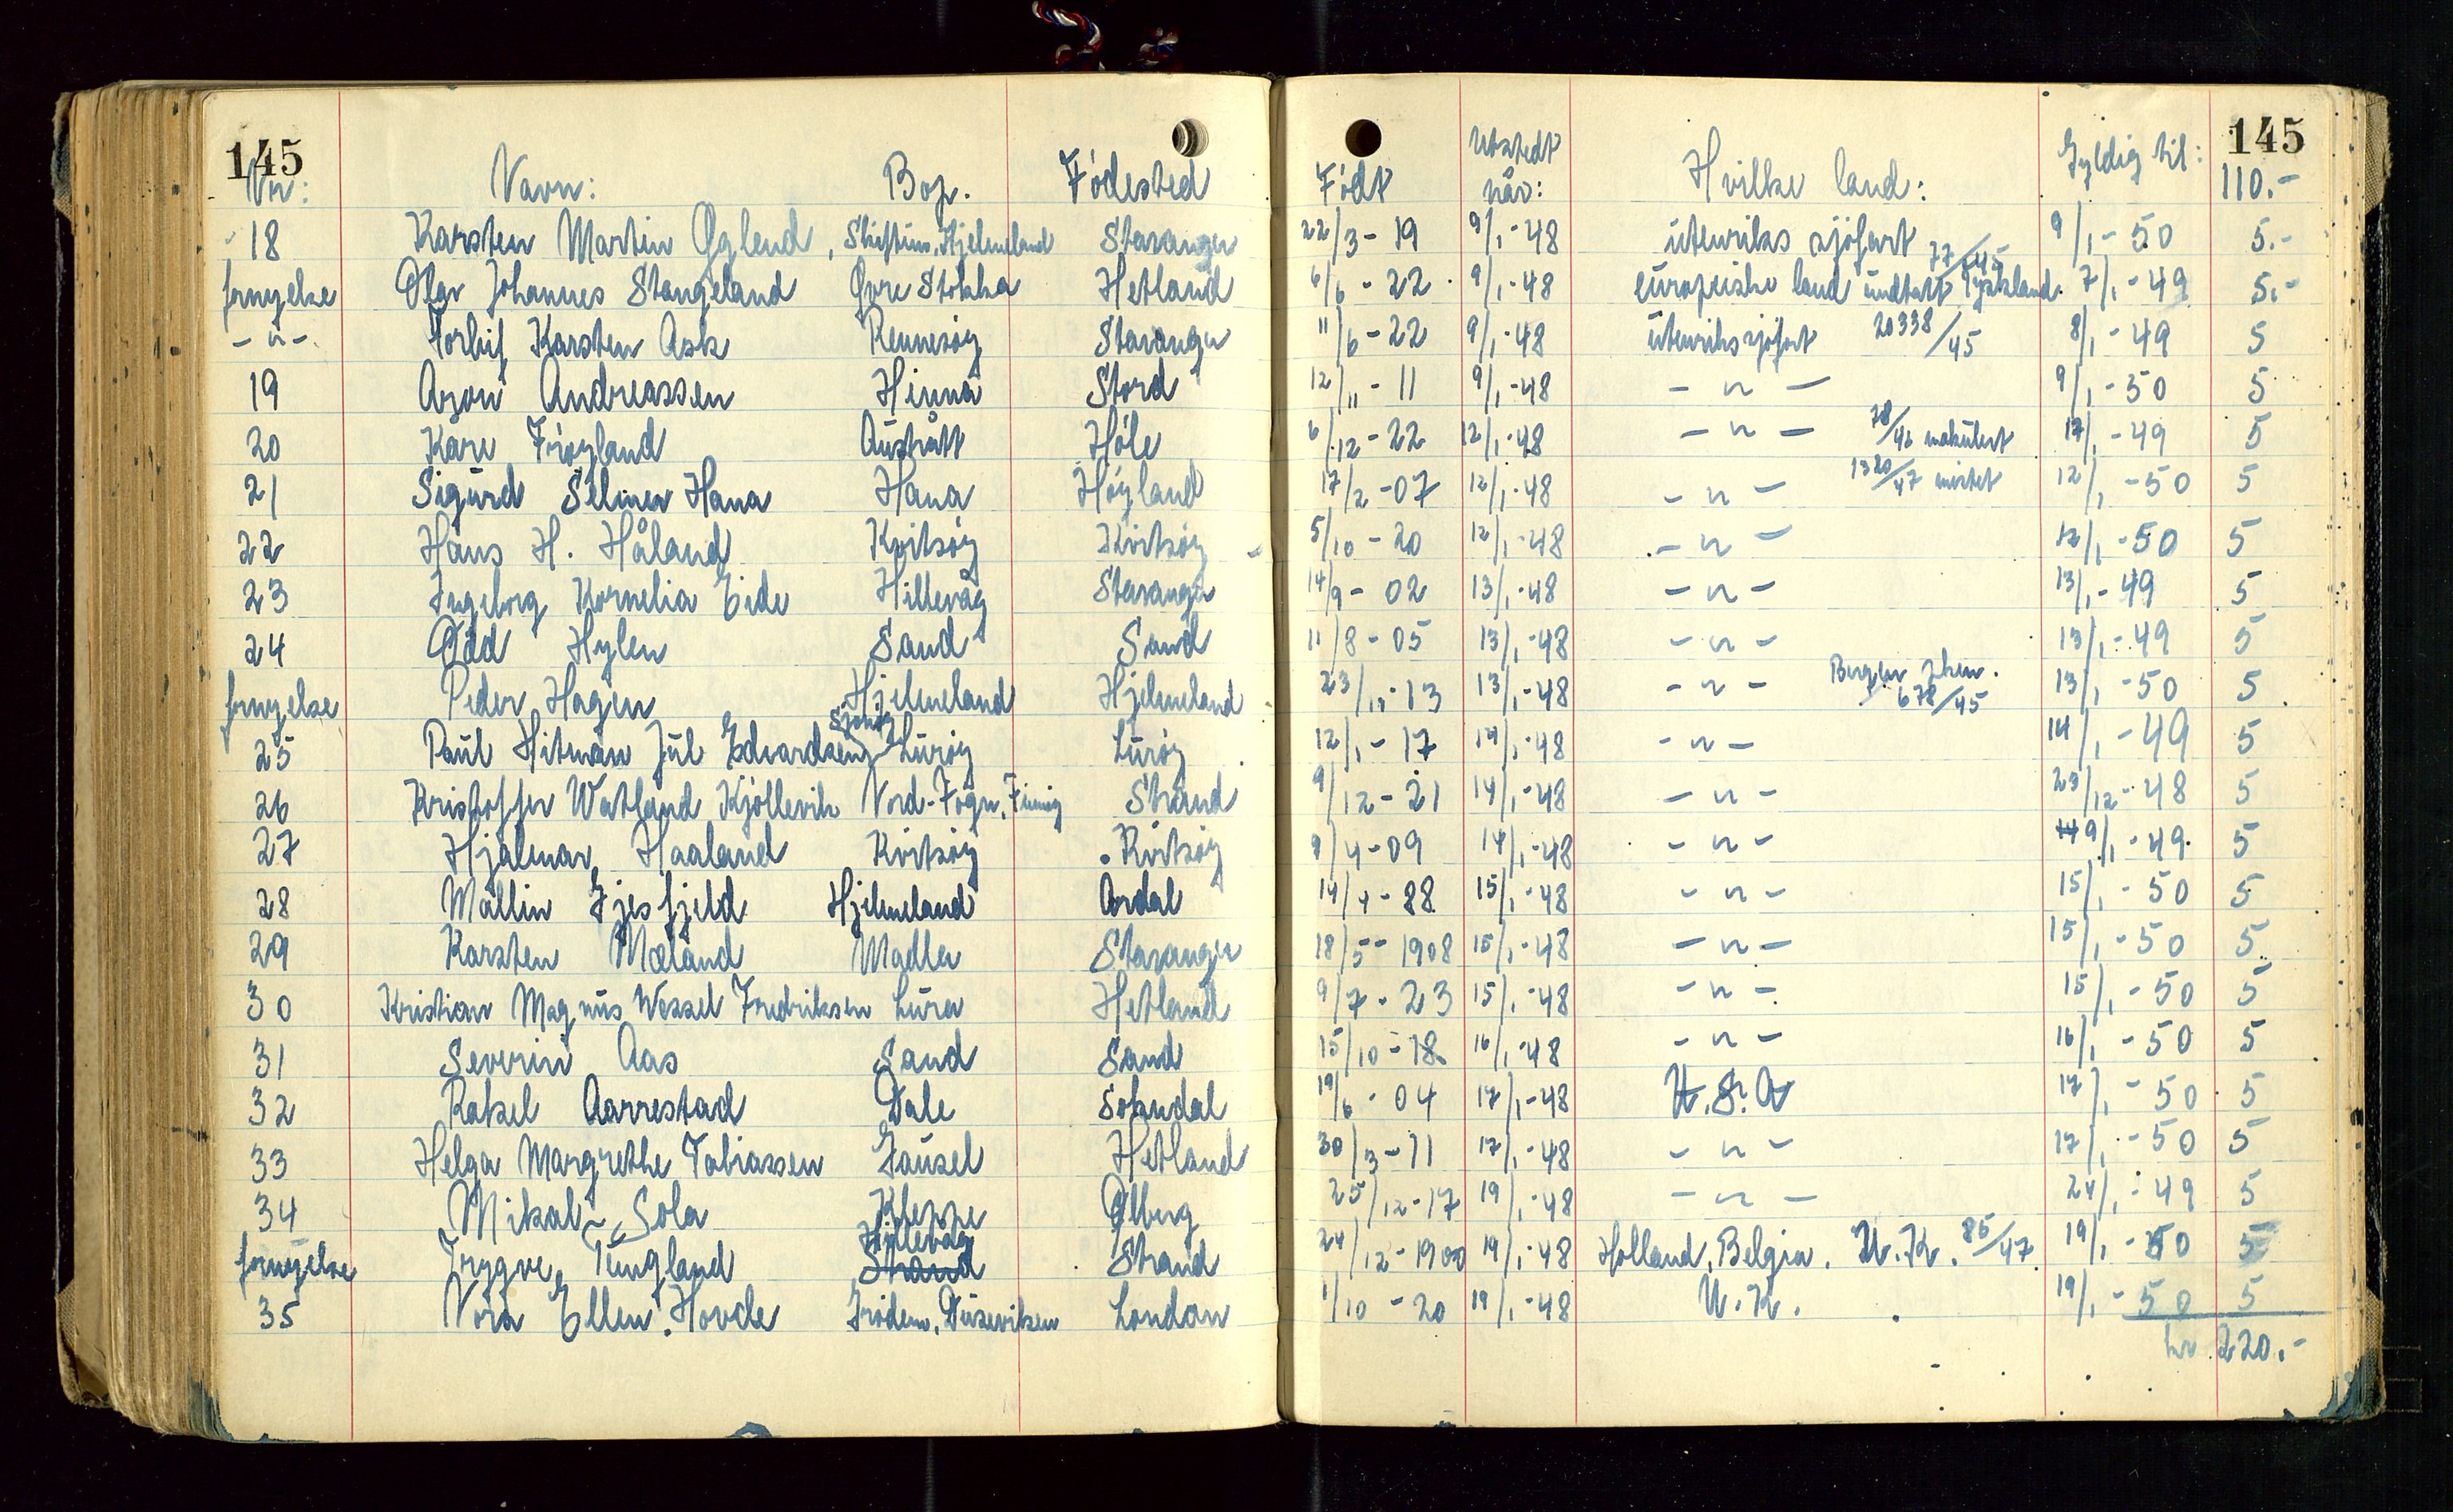 145 145
Nr: Navn: Bop. Fødested Født Utstedt når: Hvilke land: Gyldig til: 110.-
18 Karsten Martin Øglend, Skiftun, Hjelmeland Stavanger 22/3-19 9/1-48 utenriks sjøfart 9/1-50 5.-
fornyelse Olav Johannes Stangeland Øvre Stokka Hetland 6/6-22 9/1-48 europeiske land undtatt Tyskland. 77/45 7/1-49 5.-
-"- Torleif Karsten Ask Rennesøy Stavanger 11/6-22 9/1-48 utenrikssjøfart 20338/45 8/1-49 5
19 Aron Andreassen Hinna Stord 12/11-11 9/1-48 -"- 9/1-50 5
20 Kåre Frøyland Austrått Høle 6/12-22 12/1-48 -"- 78/42 makulert 12/1-49 5
21 Sigurd Selmer Hana Hana Høyland 17/2-07 12/1-48 -"- 1320/47 mistet 12/1-50 5
22 Hans H. Håland Kvitsøy Kvitsøy 5/10-20 12/1-48 -"- 12/1-50 5
23 Ingeborg Kornelia Eide Hillevåg Stavanger 14/9-02 13/1-48 -"- 13/1-49 5
24 Odd Hylen Sand Sand 11/8-05 13/1-48 -"- 13/1-49 5
fornyelse Peder Hagen Hjelmeland Hjelmeland 23/11-13 13/1-48 -"- Bergen 678/45 13/1-50 5
25 Paul Hitman Jul Edvardsen Lurøy Lurøy 12/1-17 14/1-48 -"- 14/1-49 5
26 Kristoffer Watland Kjøllevik Nord-Fogn, Finnøy Strand 9/12-21 14/1-48 -"- 23/12-48 5
27 Hjalmar Haaland Kvitsøy Kvitsøy 9/4-09 14/1-48 -"- 9/1-49 5
28 Mallin Gjesfjeld Hjelmeland Årdal 14/4-88 15/1-48 -"- 15/1-50 5
29 Karsten Mæland Madla Stavanger 18/5-1908 15/1-48 -"- 15/1-50 5
30 Kristian Magnus Wessel Fredriksen Lura Hetland 9/7-23 15/1-48 -"- 15/1-50 5
31 Severin Aas Sand Sand 15/10-18 16/1-48 -"- 16/1-50 5
32 Rakel Aarrestad Dale Sokndal 19/6-04 17/1-48 U.S.A 17/1-50 5
33 Helga Margrethe Tobiassen Gausel Hetland 30/3-11 17/1-48 -"- 17/1-50 5
34 Mikal Sola Kleppe Ølberg 25/12-17 19/1-48 -"- 24/1-49 5
fornyelse Trygve Tungland Hillevåg Strand Strand 24/12-1900 19/1-48 Holland, Belgia. U.K. 85/47 19/1-50 5
35 Nora Ellen Hovde Grødem, Dusaviken London 1/10-20 19/1-48 U.K. 19/1-50 5
kr 220.-